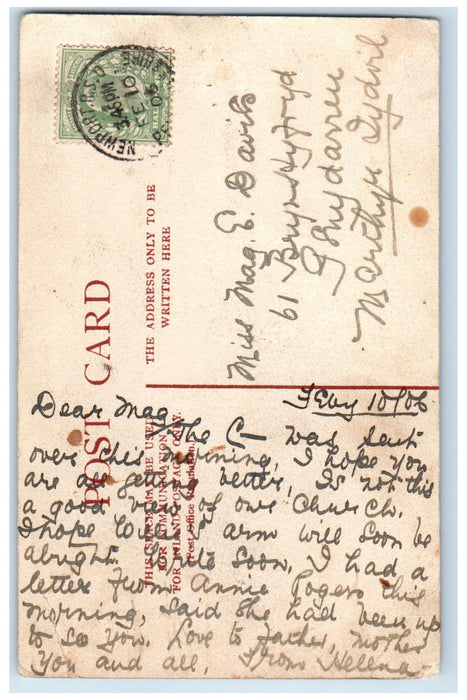 NEWPORT R.S.O.
FE 10
06
POST CARD
THE ADDRESS ONLY TO BE
WRITTEN HERE
THIS SPACE MAY BE USED
FOR COMMUNICATION
FOR INLAND POSTAGE ONLY.
(Post Office Regulation.)
Miss Mag. E. Davies
61 Brynhyfryd
Penydarren
Merthyr Tydvil
Feby 10/06
Dear Mag, The C— was sent
over this morning, I hope you
are all getting better, Is not this
a good view of our Church.
I hope arm will soon be
alright. soon, I had a
letter from Annie Rogers this
morning, said she had been up
to see you. Love to father, mother
you and all, From Helena